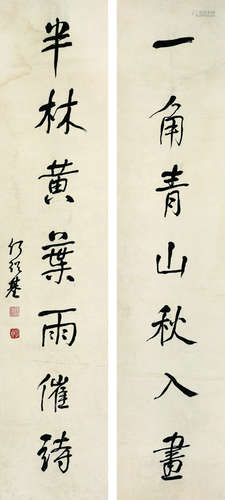 一角青山秋入畫
半林黃葉雨催詩
何紹基